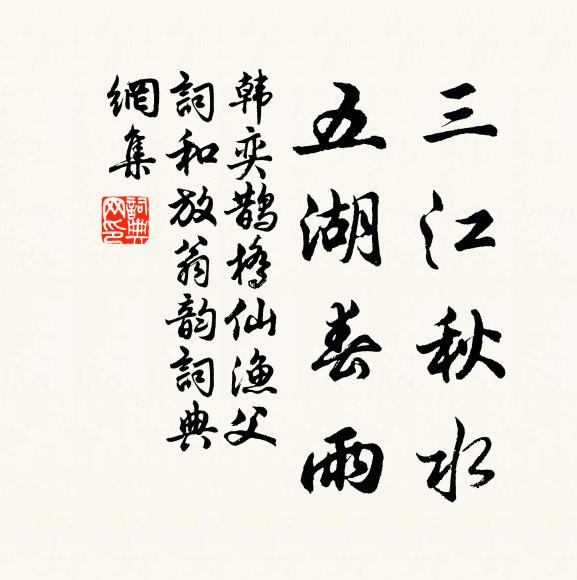 三江秋水
五湖春雨
韩奕鹊桥仙渔父
詞和放翁韵詞典
網集
詞典网印